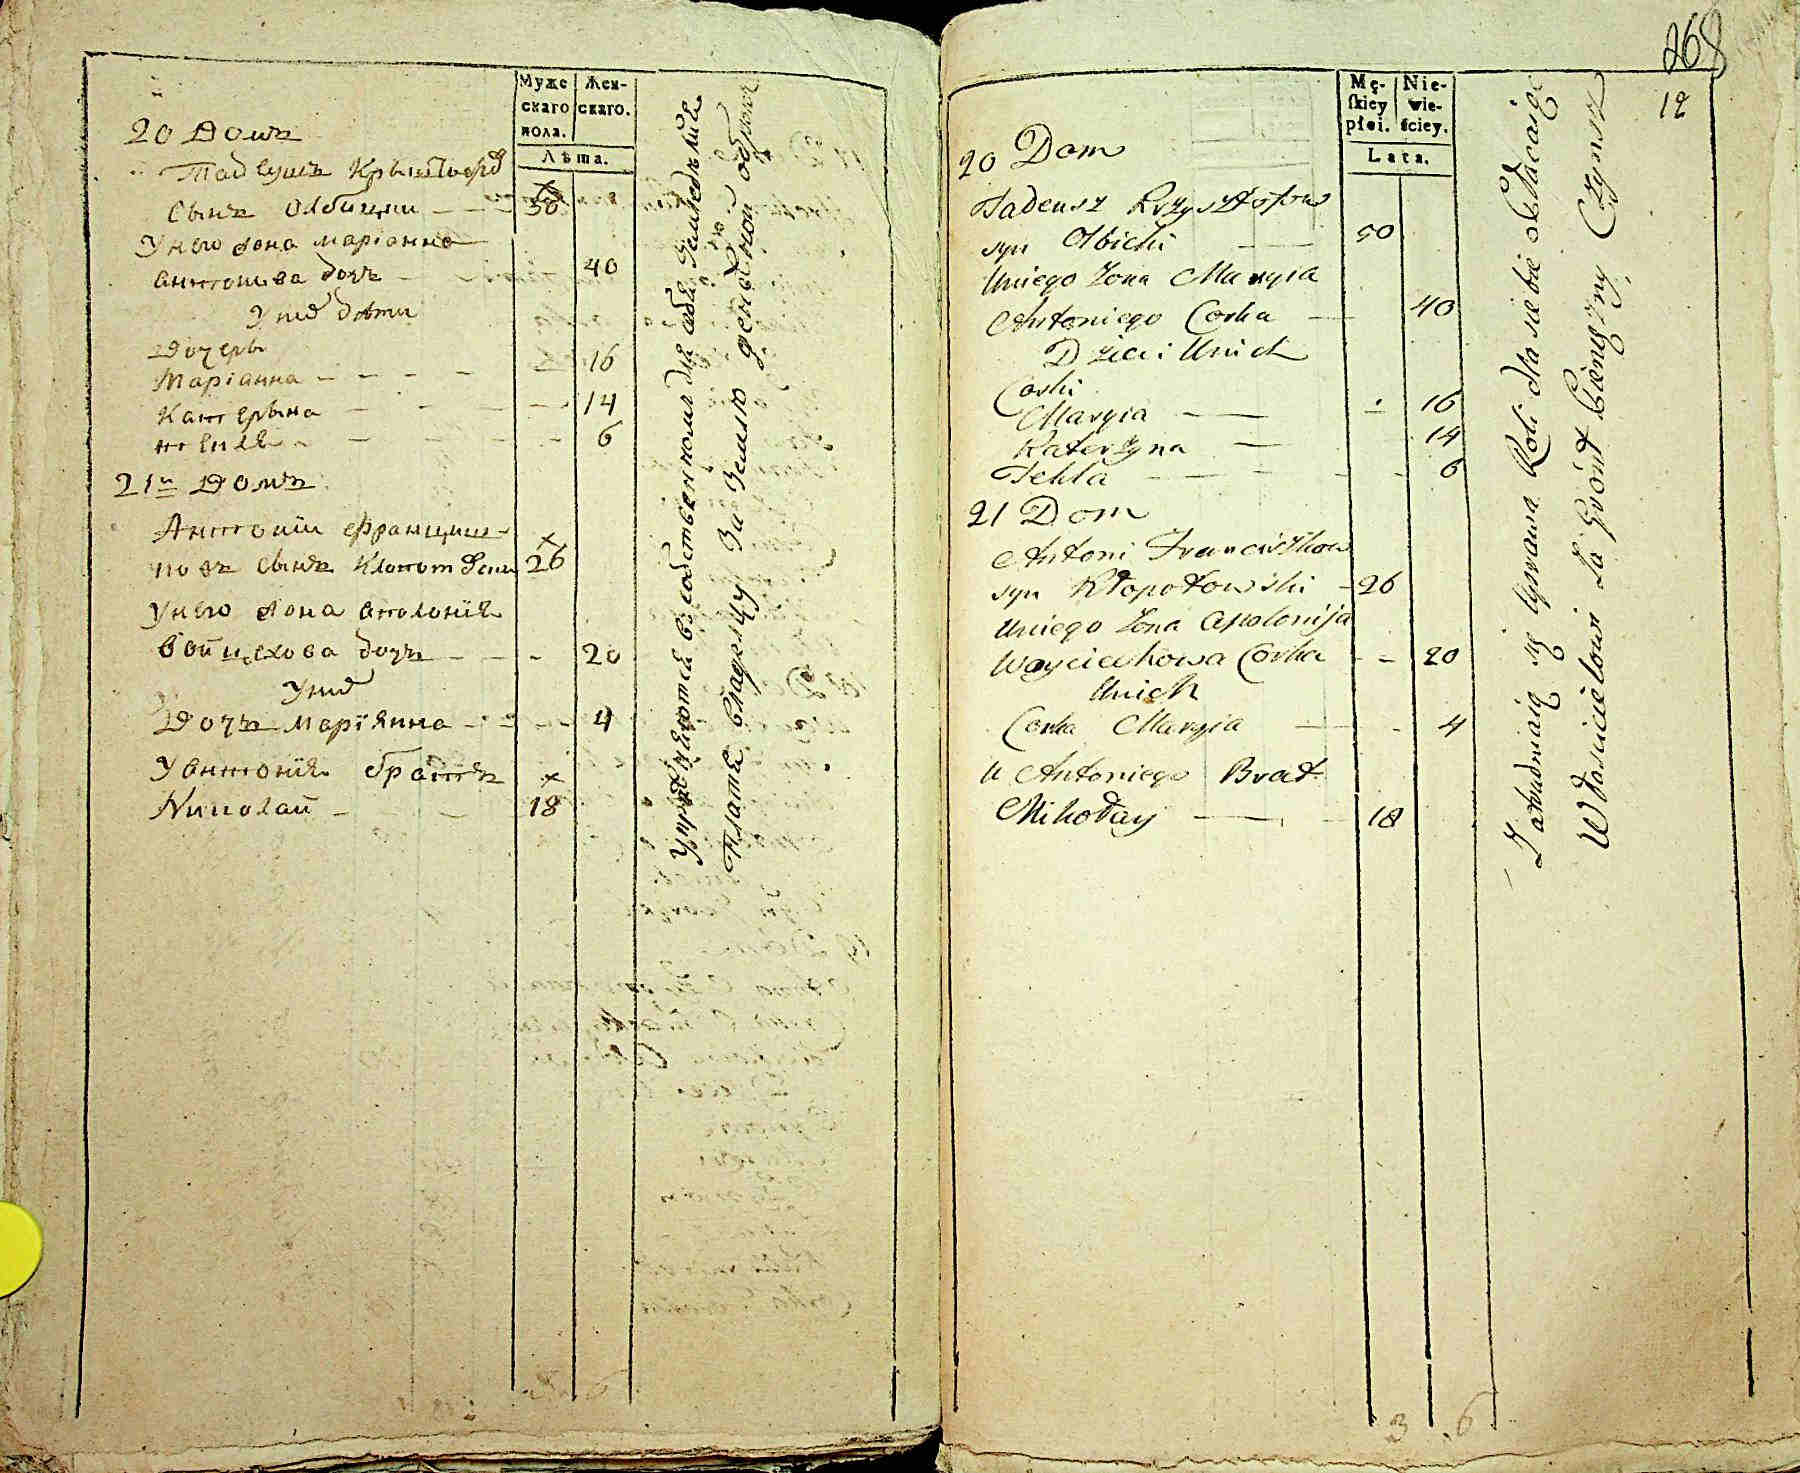 Муже
скаго
пола.
Жен-
скаго.
Лѣта.
20 Домъ
Тадеушъ Крыштофо
сынъ Олбицки
50
Унего жона маріанна
антонъева дочъ
40
Унихъ дѣти
Дочеры
Маріанна
16
Катерына
14
текля
6
21й Домъ
Антоній Францишк-
повъ сынъ Клопотовски
26
Унего жона аполонія
войцехова дочъ
20
Унихъ
Дочъ маріянна
4
Уантонія братъ
Николай
18
Упражняются въ собственномъ для себя земледѣліи
Платя владелцу за землю денежной оброкъ
268
12
Mę-
skiey
płei.
Nie-
wie-
ściey.
Lata.
20 Dom
Tadeusz Krzysztofow
syn Olbicki
50
Uniego Zona Maryia
Antoniego Corka
40
Dzieci Unich
Corki
Maryia
16
Katerzyna
14
Tekla
6
21 Dom
Antoni Franciszkow
syn Kłopotowski
26
Uniego Zona Apolonija
Woyciechowa Corka
20
Unich
Corka Maryia
4
U Antoniego Brat
Mikołay
18
Zatrudniaią się Uprawą Roli dla siebie opłacaiąc
Włascicielowi Za Gront Pieniężny Czynsz
3
6